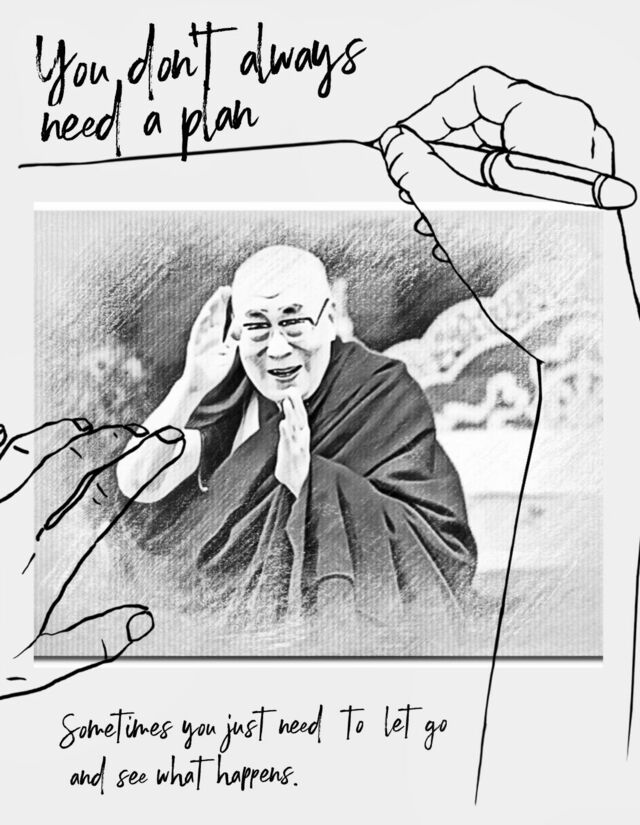 You don't always
need a plan
Sometimes you just need to let go
and see what happens.